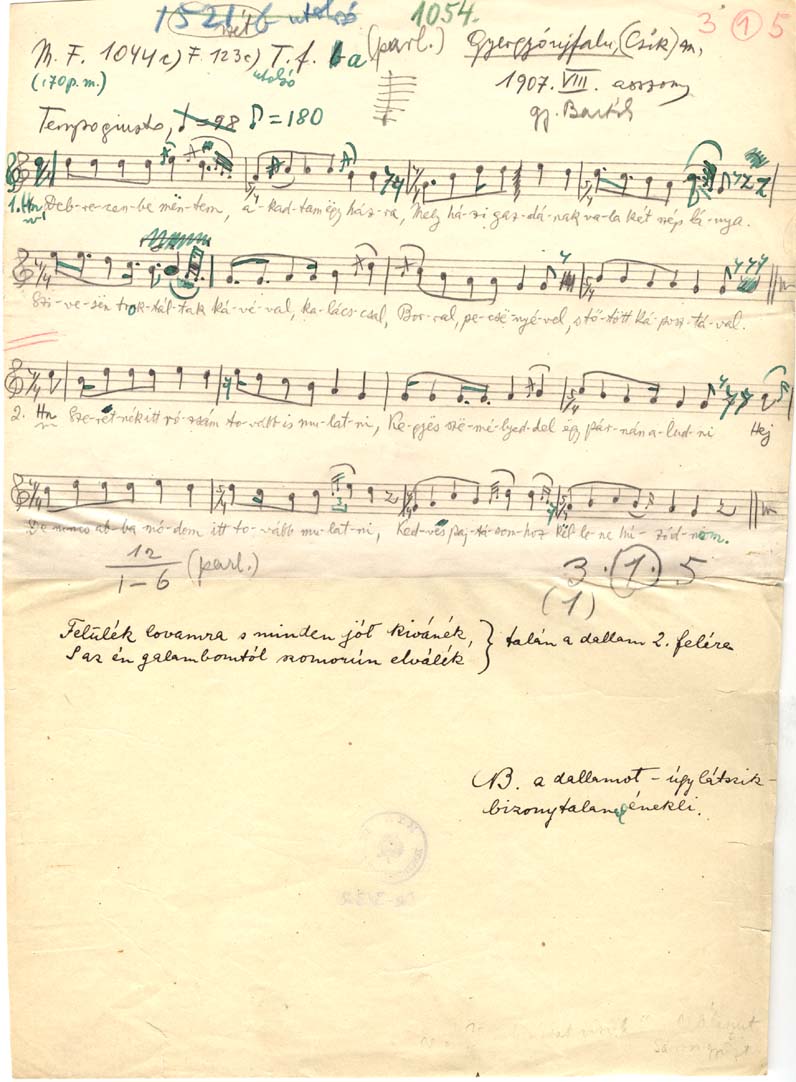 1521 b utolsó
1054.
3 1 5
M. F. 1044 c) F. 123 c) T. f. 6a (parl.) Gyergyóujfalu, (Csík) m,
(170 p. m.) utolsó 1907. VIII. asszony
gy. Bartók
Tempo giusto, ♩=98 ♪=180
1. Deb-re-cen-be mën-tem, a-kad-tam ëgy ház-ra, Mely há-zi gaz-dá-nak va-la két szép lá-nya.
Szi-ve-sën trok-tál-tak ká-vé-val, ka-lács-csal, Bor-ral, pe-cse-nyé-vel, s tö-tött ká-posz-tá-val.
2. Sze-ret-nék itt ró-zsám to-vább is mu-lat-ni, Ke-gyes szë-mé-lyed-del ëgy pár-nán a-lud-ni Hej
De nincs ab-ba mó-dom itt to-vább mu-lat-ni, Ked-ves paj-tá-som-hoz kël-le-ne hú-zód-nom.
12
1-6 (parl.)
3 . 1 . 5
(1)
Felülék lovamra s minden jót kivánék, } talán a dallam 2. felére
S az én galambomtól szomorún elválék
NB. a dallamot - úgy látszik -
bizonytalan énekli.